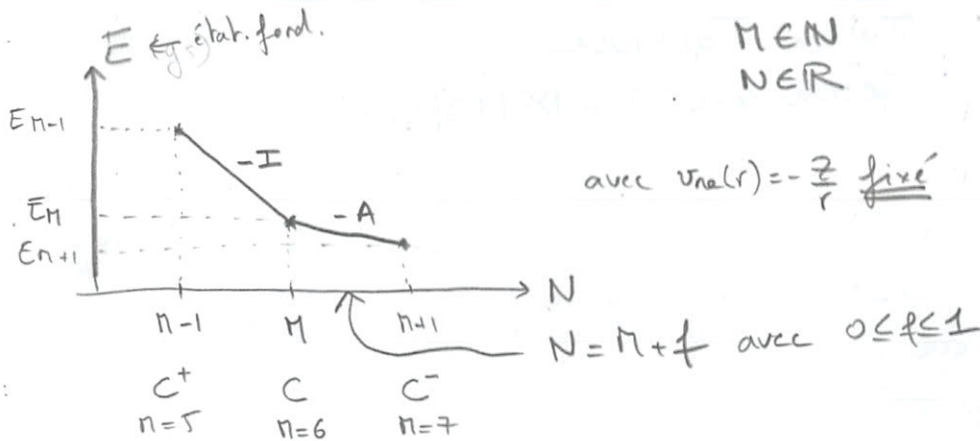 E ← état. fond.
M ∈ ℕ
N ∈ ℝ
E M-1
-I
avec vne(r) = - Z/r fixé
EM
-A
EM+1
N
M-1 M M+1
N = M + f avec 0 ≤ f ≤ 1
C⁺ C C⁻
M=5 M=6 M=7